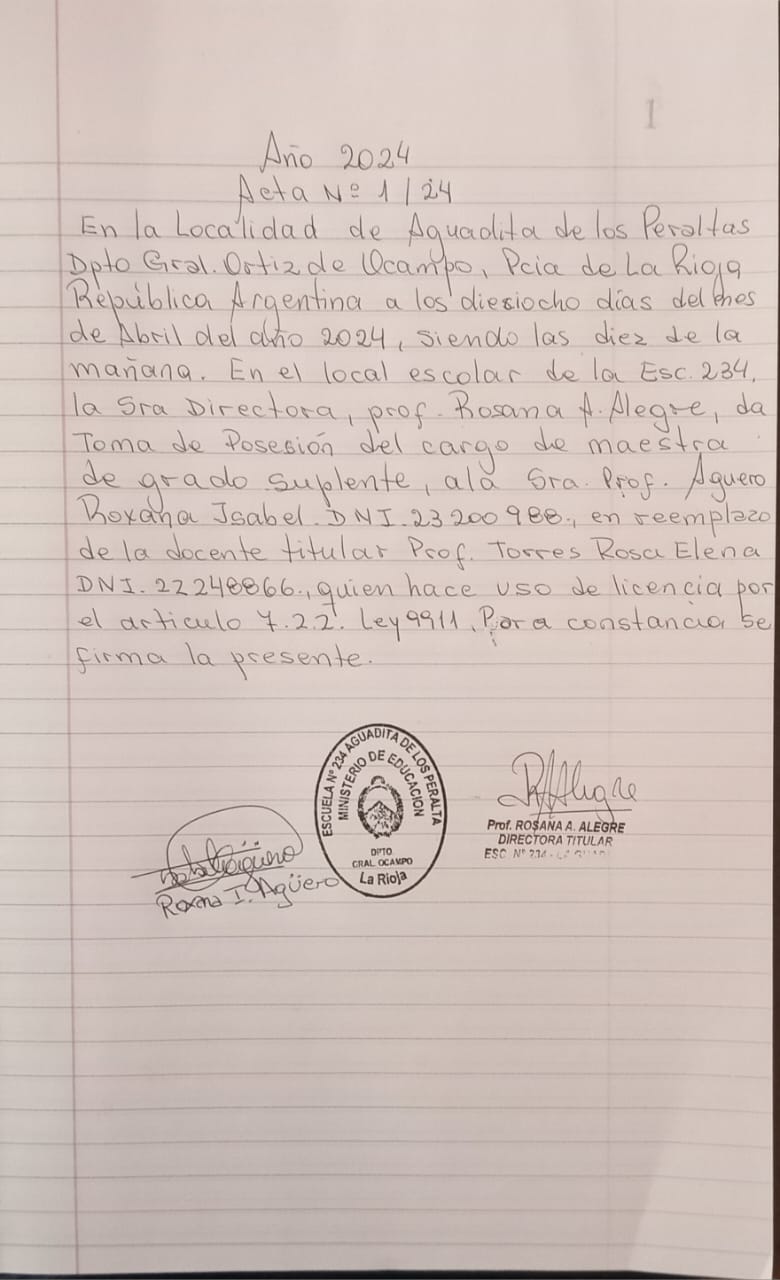 1
Año 2024
Acta Nº 1/24
En la Localidad de Aguadita de los Peraltas
Dpto Gral. Ortiz de Ocampo, Pcia de La Rioja
República Argentina a los diesiocho días del mes
de Abril del año 2024, siendo las diez de la
mañana. En el local escolar de la Esc. 234,
la Sra Directora, prof. Rosana A. Alegre, da
Toma de Posesión del cargo de maestra
de grado suplente, a la Sra. Prof. Aguero
Roxana Isabel. DNI. 23200988., en reemplazo
de la docente titular Prof. Torres Rosa Elena
DNI. 22248866., quien hace uso de licencia por
el articulo 7.2.2. Ley 9911. Para constancia se
firma la presente.
ESCUELA Nº 234 AGUADITA DE LOS PERALTA
MINISTERIO DE EDUCACION
DPTO
GRAL OCAMPO
La Rioja
RAAlegre
Prof. ROSANA A. ALEGRE
DIRECTORA TITULAR
ESC Nº 234 -
Roxana I. Agüero